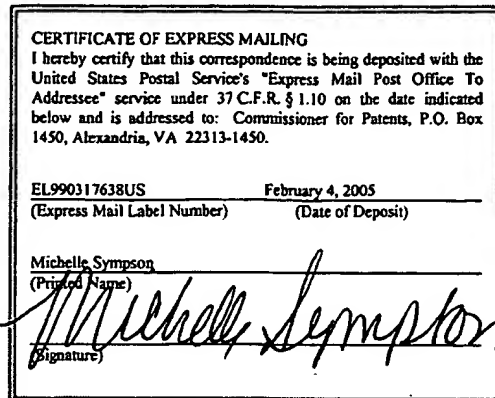 CERTIFICATE OF EXPRESS MAILING
I hereby certify that this correspondence is being deposited with the
United States Postal Service's "Express Mail Post Office To
Addressee" service under 37 C.F.R. § 1.10 on the date indicated
below and is addressed to: Commissioner for Patents, P.O. Box
1450, Alexandria, VA 22313-1450.
EL990317638US February 4, 2005
(Express Mail Label Number) (Date of Deposit)
Michelle Sympson
(Printed Name)
Michelle Sympson
(Signature)